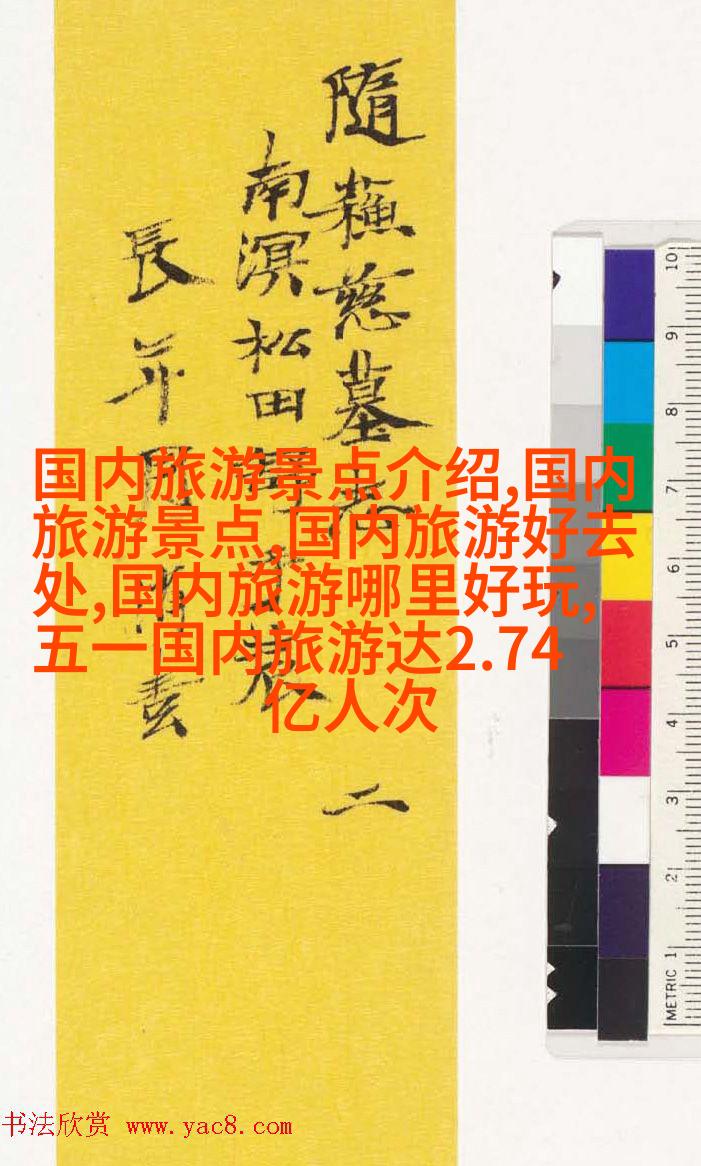 隨慈墓
二
南溟松田
長
書
国内旅游景点介绍,国内
旅游景点,国内旅游好去
处,国内旅游哪里好玩,
五一国内旅游达2.74
亿人次
10
9
8
7
6
5
4
3
2
METRIC 1
书法欣赏 www.yac8.com